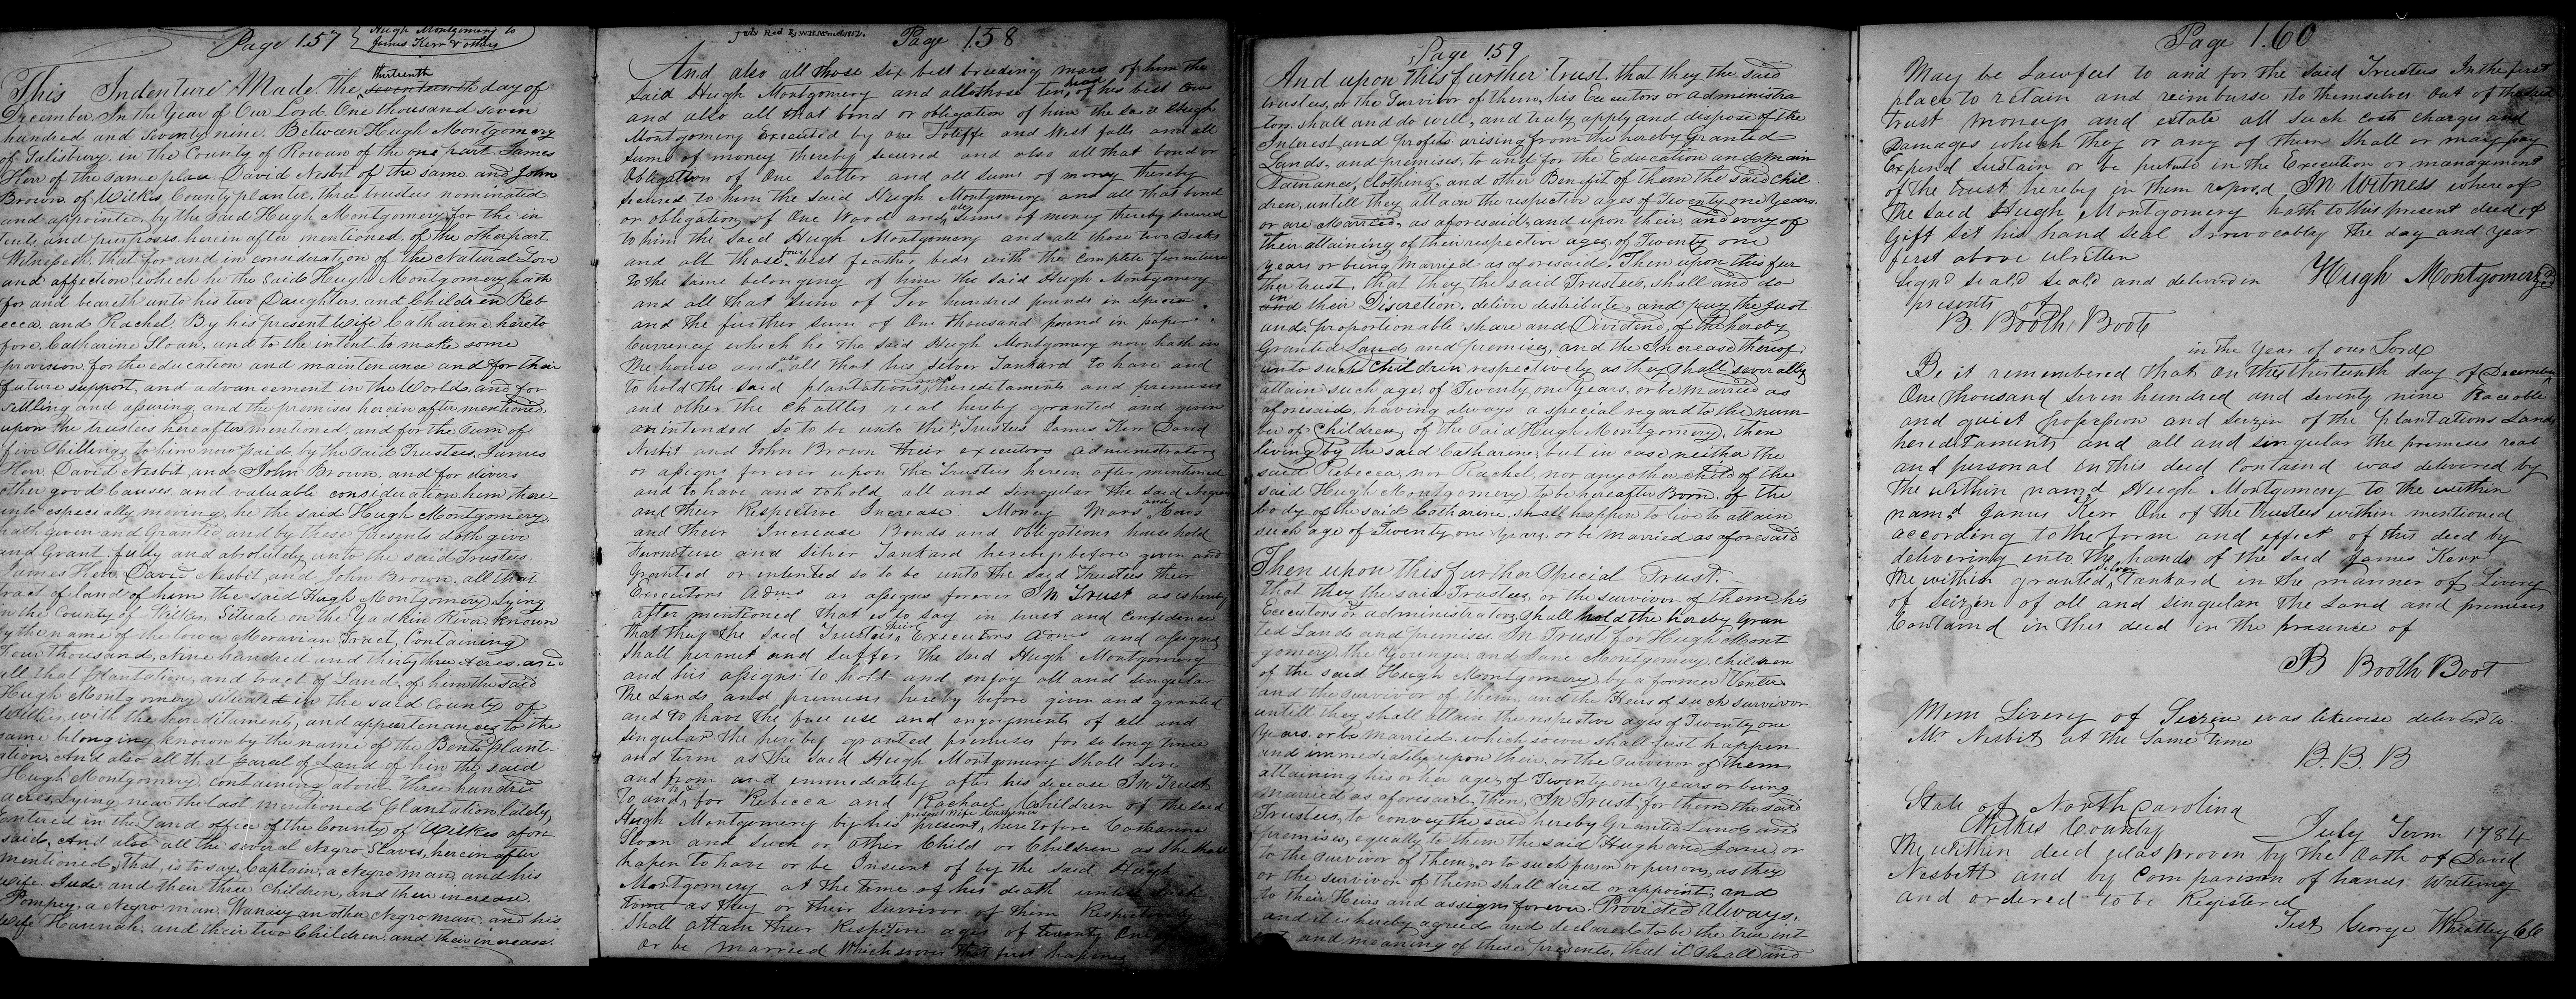 Page 157 { Hugh Montgomery to
James Kerr & others
This Indenture Made the thirteenth seventeenth day of
December In the Year of Our Lord One thousand seven
hundred and Seventy nine. Between Hugh Montgomery
of Salisbury in the County of Rowan of the one part James
Kerr of the same place David Nesbit of the same and John
Brown of Wilkes County planter, three trustees nominated
and appointed, by the said Hugh Montgomery for the in
tents and purposes herein after mentioned of the other part.
Witnesseth that for and in consideration of the Natural Love
and affection which he the said Hugh Montgomery hath
for and beareth unto his two Daughters and Children Reb
ecca and Rachel. By his present Wife Catharine hereto
fore Catharine Sloan, and to the intent to make some
provision for the education and maintenance and for their
future support, and advancement in the World, and for
settling and assuring and the premises herein after mentioned
upon the trustees hereafter mentioned, and for the Sum of
five Shillings to him now paid by the said Trustees, James
Kerr, David Nesbit and John Brown, and for divers
other good Causes and valuable consideration him there
unto especially moving, he the said Hugh Montgomery,
hath given and Granted and by these presents doth give
and Grant fully and absolutely unto the said Trustees.
James Kerr, David Nesbit and John Brown, all that
tract of land of him the said Hugh Montgomery lying
in the County of Wilkes, Situate on the Yadkin River known
by the name of the lower Moravian Tract Containing
Four thousand, Nine hundred and thirty three Acres, and
all that plantation, and tract of Land of him the said
Hugh Montgomery situate in the said County of
Wilkes, with the hereditaments, and appurtenances to the
same belonging known by the name of the Bents plant-
ation. And also all that parcel of Land of him the said
Hugh Montgomery containing about three hundred
acres, lying near the last mentioned plantation lately,
entered in the Land office of the County of Wilkes afore
said. And also all the several Negro Slaves, herein after
mentioned, that is to say Captain, a negro man, and his
wife Jude and their three Children, and their increase.
Pompey, a Negro man, another Negro man, and his
Wife Hannah, and their two Children, and their increase.
Page 158
And also all those six best breeding mars of him the
said Hugh Montgomery and all those ten head of his best Cows
and also all that bond or obligation of him the said Hugh
Montgomery executed by one and West falls and all
sums of money thereby secured and also all that bond or
Obligation of One Satter and all sums of money thereby
secured to him the said Hugh Montgomery and all that bond
or obligation of One Wood and all Sums of money thereby secured
to him the said Hugh Montgomery and all those two Desks
and all those four best feather beds with the Complete furniture
to the same belonging of him the said Hugh Montgomery
and all that sum of Too hundred pounds in specia
and the further sum of One thousand pound in paper
Currency which he the said Hugh Montgomery now hath in
the house and also all that his Silver Tankard to have and
to hold the said plantation Hereditaments and premises
and other the chattles real hereby granted and given
or intended so to be unto the sd Trustees James Kerr David
Nesbit and John Brown their executors administrators
or assigns forever upon the Trustees herein after mentioned
and to have and to hold all and singular the said Negroes
and their Respective increase Money Mars and Cows
and their Increase Bonds and Obligations household
Furniture and Silver Tankard hereby before given and
Granted or intented so to be unto the said Trustees their
Executors Adms or assigns forever In Trust as is hereby
after mentioned that is to say in trust and Confidence
that they the said Trustees their Executors Adms and assigns
shall permit and suffer the said Hugh Montgomery
and his assigns to hold and enjoy all and singular
the Lands and premises hereby before given and granted
and to have the free use and enjoyments of all and
singular the hereby granted premises for so long time
and term as the said Hugh Montgomery shall live
and from and immediately after his decease In Trust
to and for Rebecca and Rachael Children of the said
Hugh Montgomery by his present present Wife Catharine heretofore Catharine
Sloan and Such or other Child or Children as she shall
hapen to have or be Ensient of by the said Hugh
Montgomery at the time of his death untill such
time as they or their survivor of them Respectively
shall attain their Respective ages of twenty One
or be married Whichsoever that first hapens
Page 159
And upon this further trust, that they the said
trustees, or the Survivor of them, his Executors or administra
tors, shall and do well, and truly apply and dispose of the
Interest and profits arising from the hereby Granted
Lands, and premises, to and for the Education and main
tainance, Clothing, and other Benefit of them the said Chil
dren, untill they attain the respective ages of Twenty one Years.
or are Married, as aforesaid, and upon their, and every of
their attaining of their respective ages of Twenty one
years or being married as aforesaid. Then upon this fur
ther trust, that they the said Trustees, shall and do
and in their Discretion, deliver distribute, and pay the just
and proportionable share and Dividend, of the hereby
Granted Lands and premises, and the Increase thereof,
unto such Children respectively as they shall severally
attain such age, of Twenty one Years, or be married as
aforesaid, having always a special regard to the num
ber of Children, of the said Hugh Montgomery, then
living by the said Catharine, but in case neither the
said Rebecca, nor Rachel, nor any other child of the
said Hugh Montgomery to be hereafter Born, of the
body of the said Catharine shall happen to live to attain
such age of Twenty one Years, or be married as aforesaid
Then upon this further Special Trust.
That they the said Trustees, or the survivor of them his
Executors or administrators, shall hold the hereby Gran
ted Lands and premises. In Trust for Hugh Mont
gomery, the Younger, and Jane Montgomery, children
of the said Hugh Montgomery, by a former Venter
and the survivor of them, and the Heirs of such survivor
untill they shall attain the respective ages of Twenty one
Years, or be married, which soever shall first happen
and immediately upon their, or the survivor of them
attaining his or her age, of Twenty one Years or being
married as aforesaid, then, In Trust, for them the said
Trustees, to convey the said hereby Granted Lands and
premises, equally to them the said Hugh and Jane, or
to the survivor of them, or to such person or persons, as they
or the survivor of them shall direct or appoint, and
to their Heirs and assigns forever. Provided Always.
and it is hereby agreed and declared to be the true int
ent and meaning of these presents, that it shall and
Page 160
May be Lawfull to and for the said Trustees In the first
place to retain and reimburse to themselves out of the said
trust moneys and estate all such costs charges and
Damages which they or any of them shall or may pay
Expend sustain or be put to in the Execution or management
of the trust hereby in them reposed In Witness whereof
the said Hugh Montgomery hath to this present deed of
Gift set his hand seal Irrevocably the day and year
first above written
Signd seald seald and delivered in Hugh Montgomery
presents of
B. Booth Boote
in the Year of our Lord
Be it remembered that On this thirteenth day of December
One Thousand seven hundred and seventy nine Peaceble
and quiet possession and seizen of the plantations Lands
hereditaments and all and singular the premises real
and personal in this deed Containd was delivered by
the within named Hugh Montgomery to the within
named James Kerr One of the trustees within mentioned
according to the form and effect of this deed by
delivering into the hands of the said James Karr
the within granted silver Tankard in the manner of Livery
of Seizen of all and singular the Land and premises
Containd in this deed in the presence of
B Booth Boot
Mem Livery of Seizen was likewise deliverd to
Mr Nesbit at the Same time
B. B. B
State of North Carolina
Wilkes County July Term 1784
The within deed was proven by the Oath of David
Nesbitt and by Comparison of hands Writing
and ordered to be Registered
Test George Wheatley CC